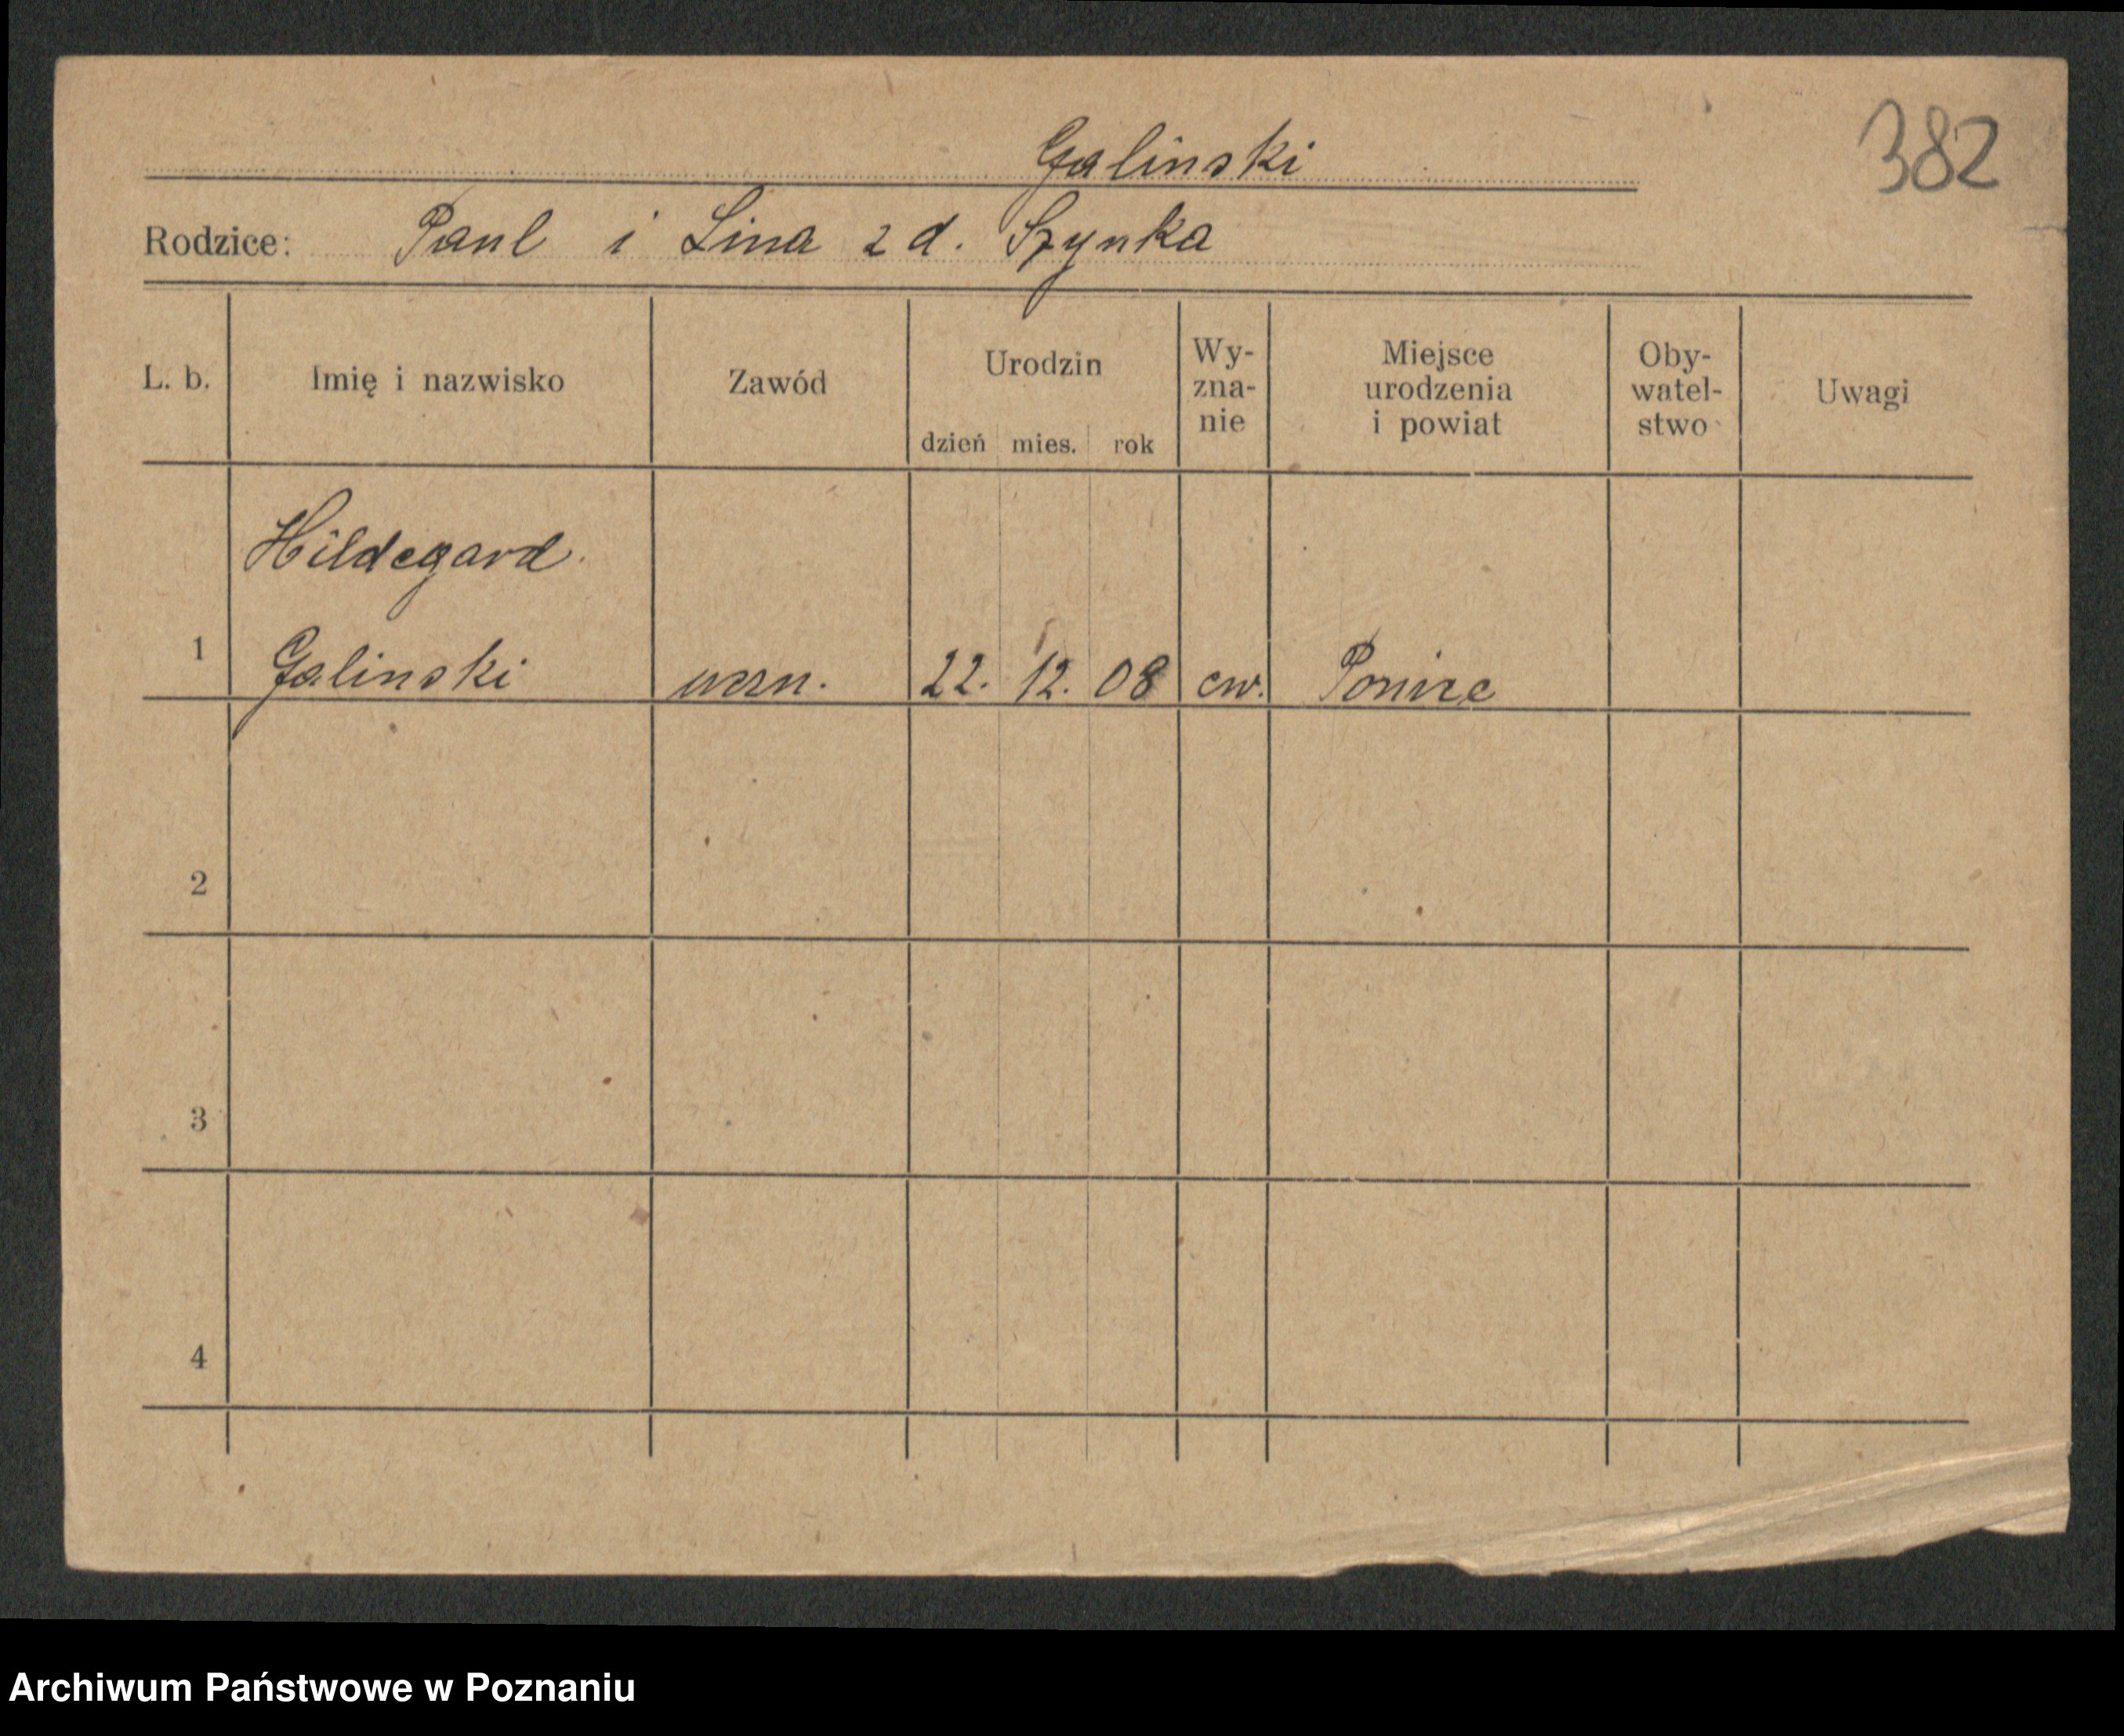 Galinski
382
Rodzice: Paul i Lina z d. Szynka
L. b. Imię i nazwisko Zawód Urodzin dzień mies. rok Wy-zna-nie Miejsce urodzenia i powiat Oby-watel-stwo Uwagi
Hildegard
1 Galinski uczn. 22. 12. 08 ew. Poniec
2
3
4
Archiwum Państwowe w Poznaniu